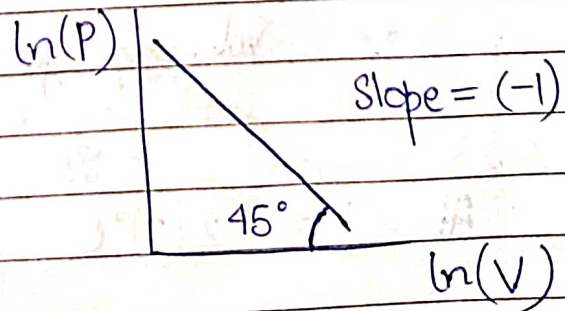 ln(P)
Slope = (-1)
45°
ln(V)